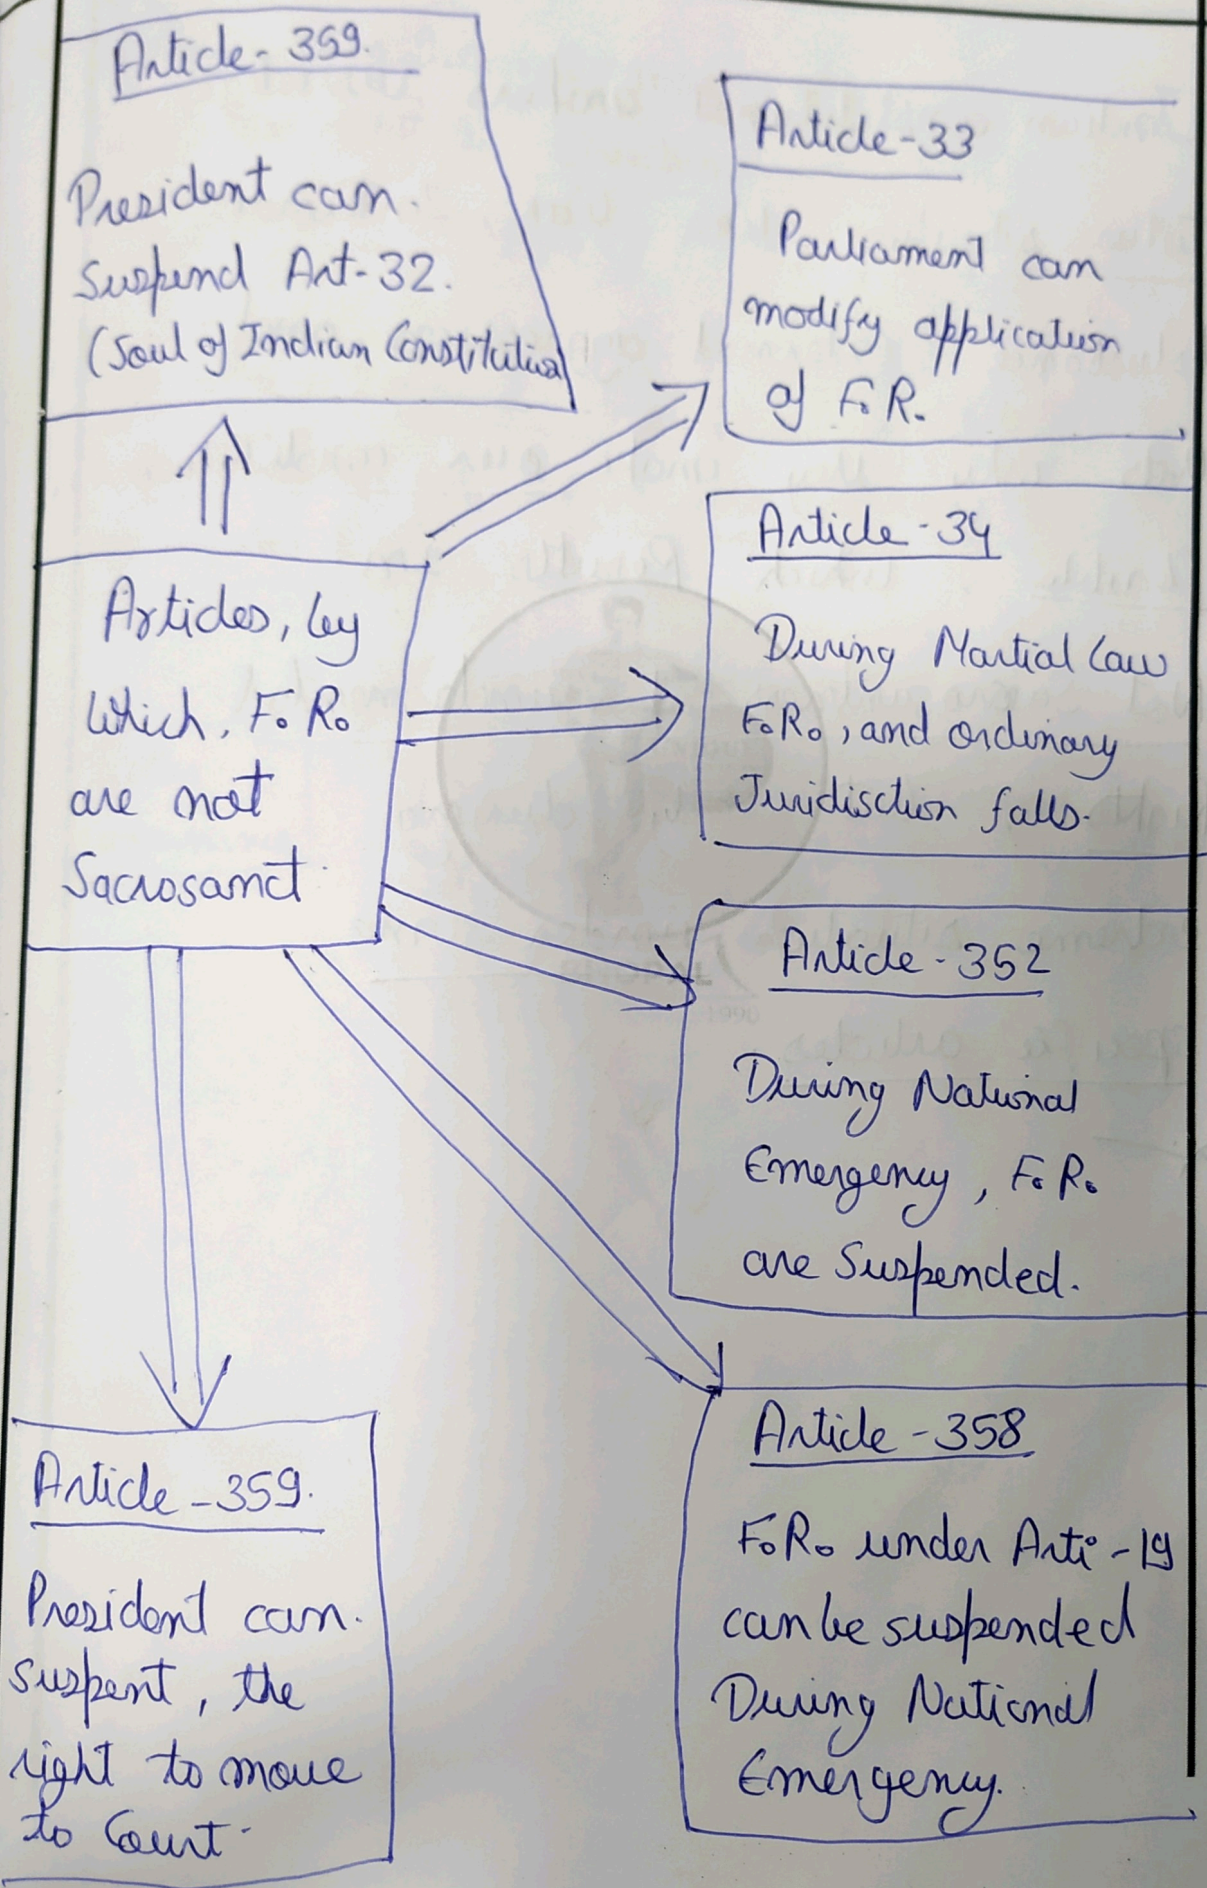 Article- 359.
President can.
Suspend Art-32.
(Soul of Indian Constitution
Article-33
Parliament can
modify application
of F.R.
Articles, by
which, F.R.
are not
Sacrosanct.
Article - 34
During Martial Law
F.R., and ordinary
Juridisction falls.
Article - 352
During National
Emergency, F.R.
are Suspended.
Article - 358
F.R. under Arti - 19
can be suspended
During National
Emergency.
Article - 359.
President can.
suspent, the
right to move
to Court.